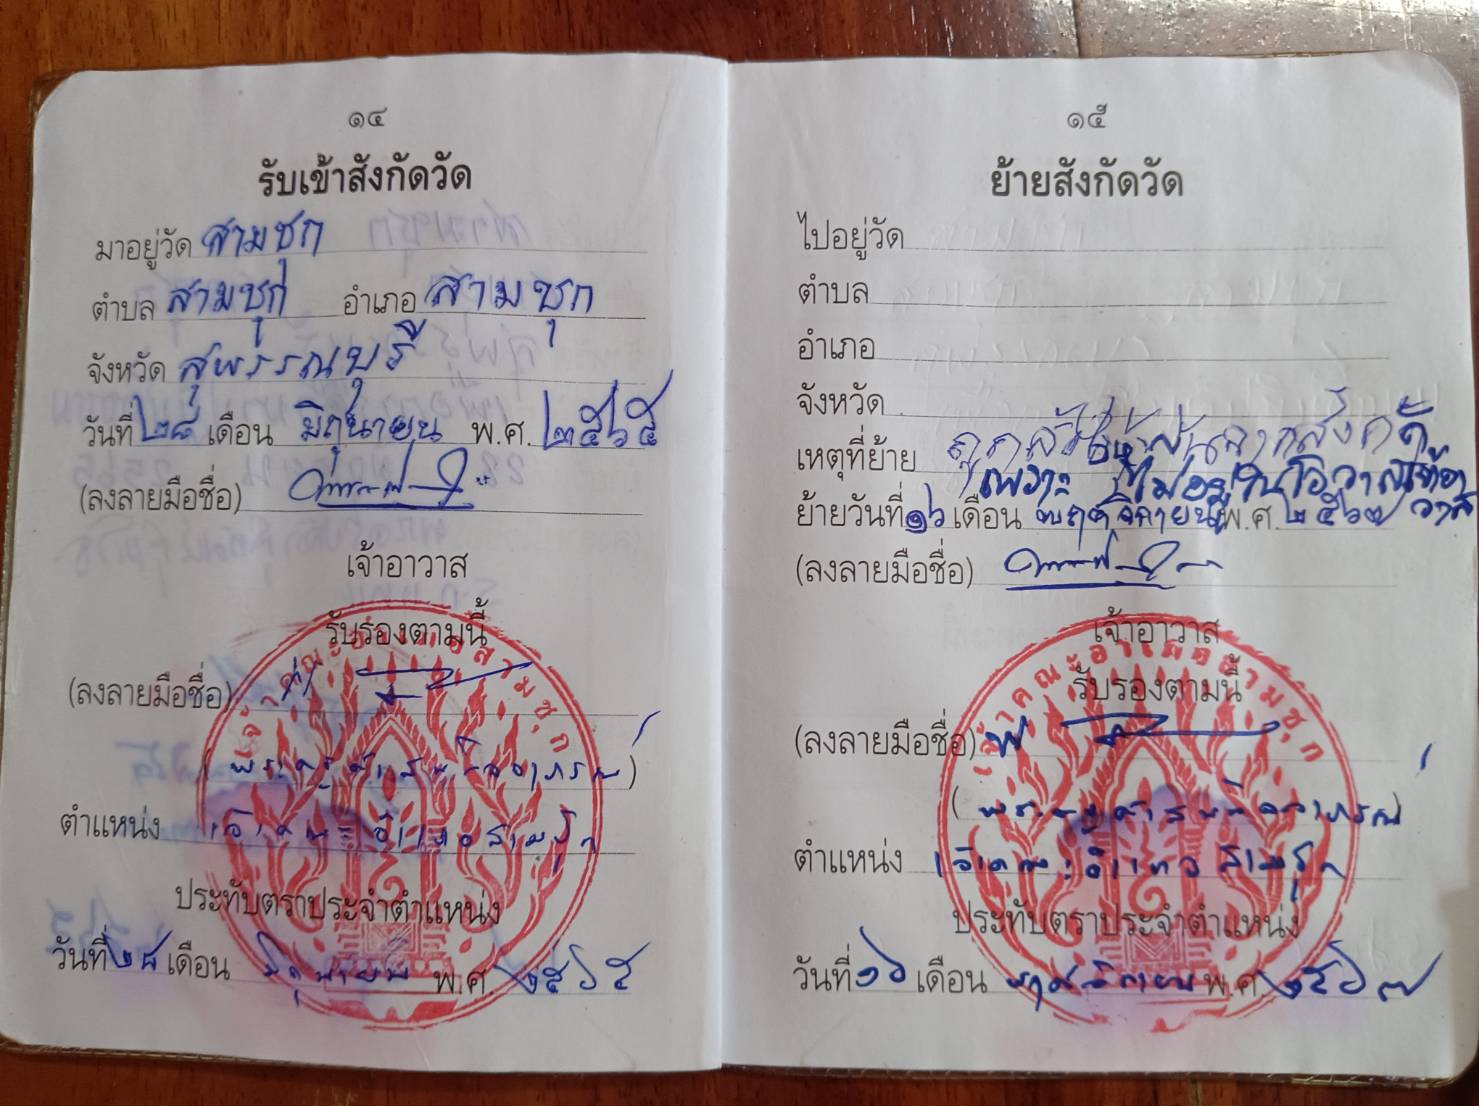 ๑๔
รับเข้าสังกัดวัด
มาอยู่วัด สามชุก
ตำบล สามชุก อำเภอ สามชุก
จังหวัด สุพรรณบุรี
วันที่ ๒๘ เดือน มิถุนายน พ.ศ. ๒๕๖๕
(ลงลายมือชื่อ)
เจ้าอาวาส
รับรองตามนี้
(ลงลายมือชื่อ)
ตำแหน่ง เจ้าคณะอำเภอสามชุก
ประทับตราประจำตำแหน่ง
วันที่ ๒๘ เดือน มิถุนายน พ.ศ. ๒๕๖๕
เจ้าคณะอำเภอสามชุก
๑๕
ย้ายสังกัดวัด
ไปอยู่วัด
ตำบล
อำเภอ
จังหวัด
เหตุที่ย้าย ถูก จากสังกัด
เพราะ ไม่อยู่ในโอวาทเจ้าอาวาส
ย้ายวันที่ ๑๖ เดือน พฤศจิกายน พ.ศ. ๒๕๖๗
(ลงลายมือชื่อ)
เจ้าอาวาส
รับรองตามนี้
(ลงลายมือชื่อ)
ตำแหน่ง เจ้าคณะอำเภอสามชุก
ประทับตราประจำตำแหน่ง
วันที่ ๑๖ เดือน พฤศจิกายน พ.ศ. ๒๕๖๗
เจ้าคณะอำเภอสามชุก